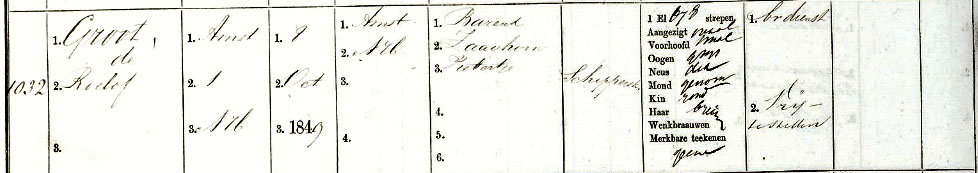 1032
1. Groot,
de
2. Roelof
3.
1. Amst
2. 1
3. NH
1. 9
2. Oct
3. 1849
1. Amst
2. NH
3.
4.
1. Barend
2.
3. Pietertje
4.
5.
6.
1 El 678 strepen,
Aangezigt ovaal
Voorhoofd smal
Oogen grijs
Neus dik
Mond gewoon
Kin rond
Haar bruin
Wenkbraauwen
Merkbare teekenen
geene
1. brdienst
2. Vrij-
te stellen